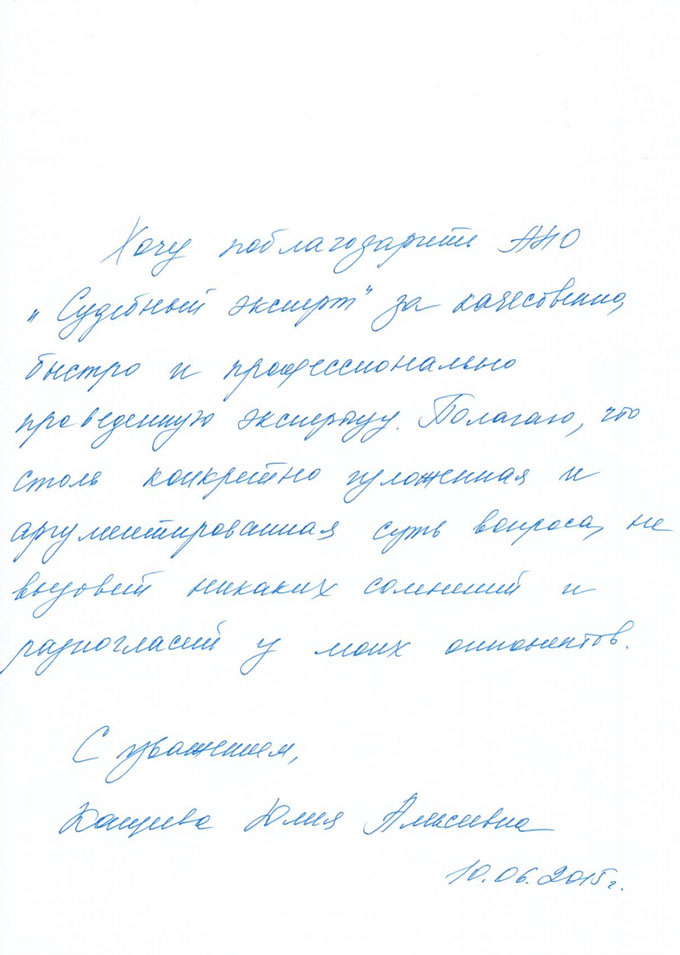 Хочу поблагодарить АНО
„Судебный эксперт" за качественно,
быстро и профессионально
проведенную экспертизу. Полагаю, что
столь конкретно изложенная и
аргументированная суть вопроса, не
вызовет никаких сомнений и
разногласий у моих оппонентов.
С уважением,
Юлия Алексеевна
10.06.2015г.